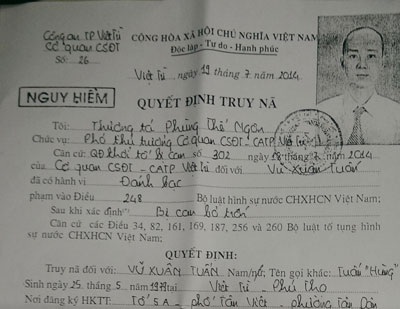 Công an TP Việt Trì
Cơ quan CSĐT
Số: 26
CỘNG HÒA XÃ HỘI CHỦ NGHĨA VIỆT NAM
Độc lập - Tự do - Hạnh phúc
Việt Trì, ngày 19 tháng 7 năm 2014
NGUY HIỂM
QUYẾT ĐỊNH TRUY NÃ
Tôi: Thượng tá Phùng Thế Ngon
Chức vụ: Phó thủ trưởng Cơ quan CSĐT - CATP Việt Trì
Căn cứ: QĐ khởi tố bị can số 302 ngày tháng 7 năm 2014
của Cơ quan CSĐT - CATP Việt Trì đối với Vũ Xuân Tuấn
đã có hành vi Đánh bạc
phạm vào Điều 248 Bộ luật hình sự nước CHXHCN Việt Nam;
Sau khi xác định Bị can bỏ trốn
Căn cứ các Điều 34, 82, 161, 169, 187, 256 và 260 Bộ luật tố tụng hình
sự nước CHXHCN Việt Nam;
QUYẾT ĐỊNH:
Truy nã đối với: VŨ XUÂN TUẤN Nam/nữ; Tên gọi khác: Tuấn "Hùng"
Sinh ngày 25 tháng 5 năm 1971 tại Việt Trì - Phú Thọ
Nơi đăng ký HKTT: Tổ 5A - phố Tân Việt - phường Tân Dân